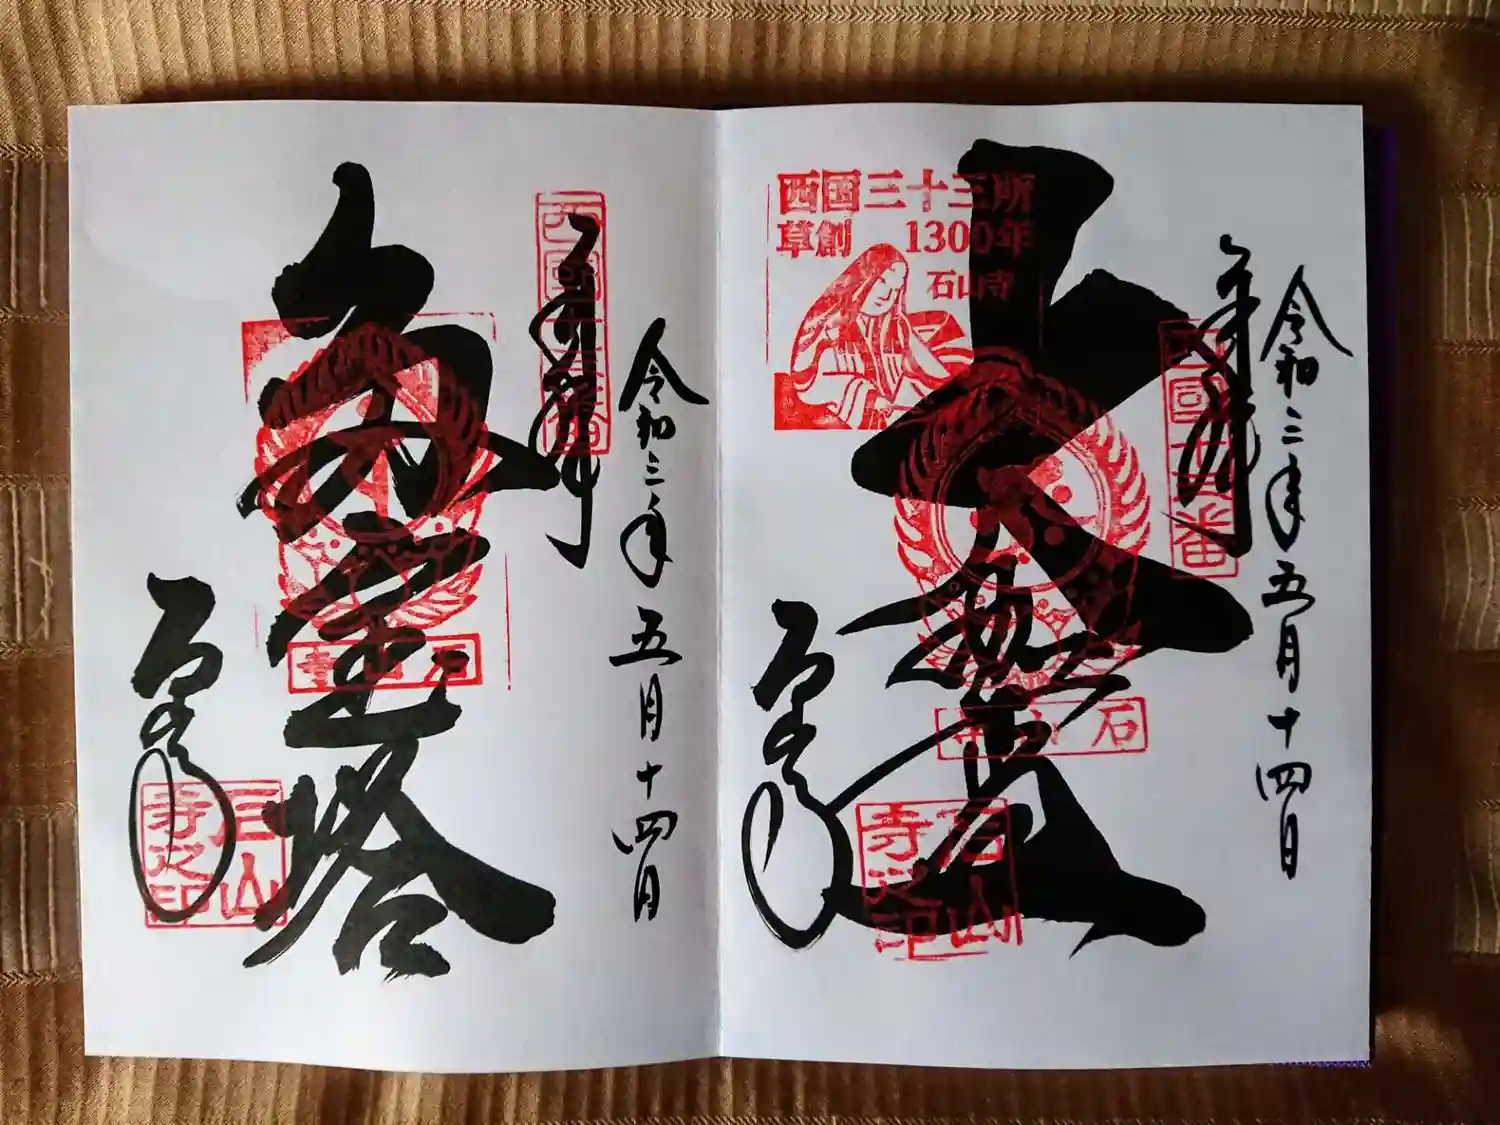 西国三十三所
草創 1300年
石山寺
令和三年五月十四日
奉拝
西國十三番
石山寺
石山寺
石山寺之印
令和三年五月十四日
奉拝
西國十三番
多宝塔
石山寺
石山寺
石山寺之印